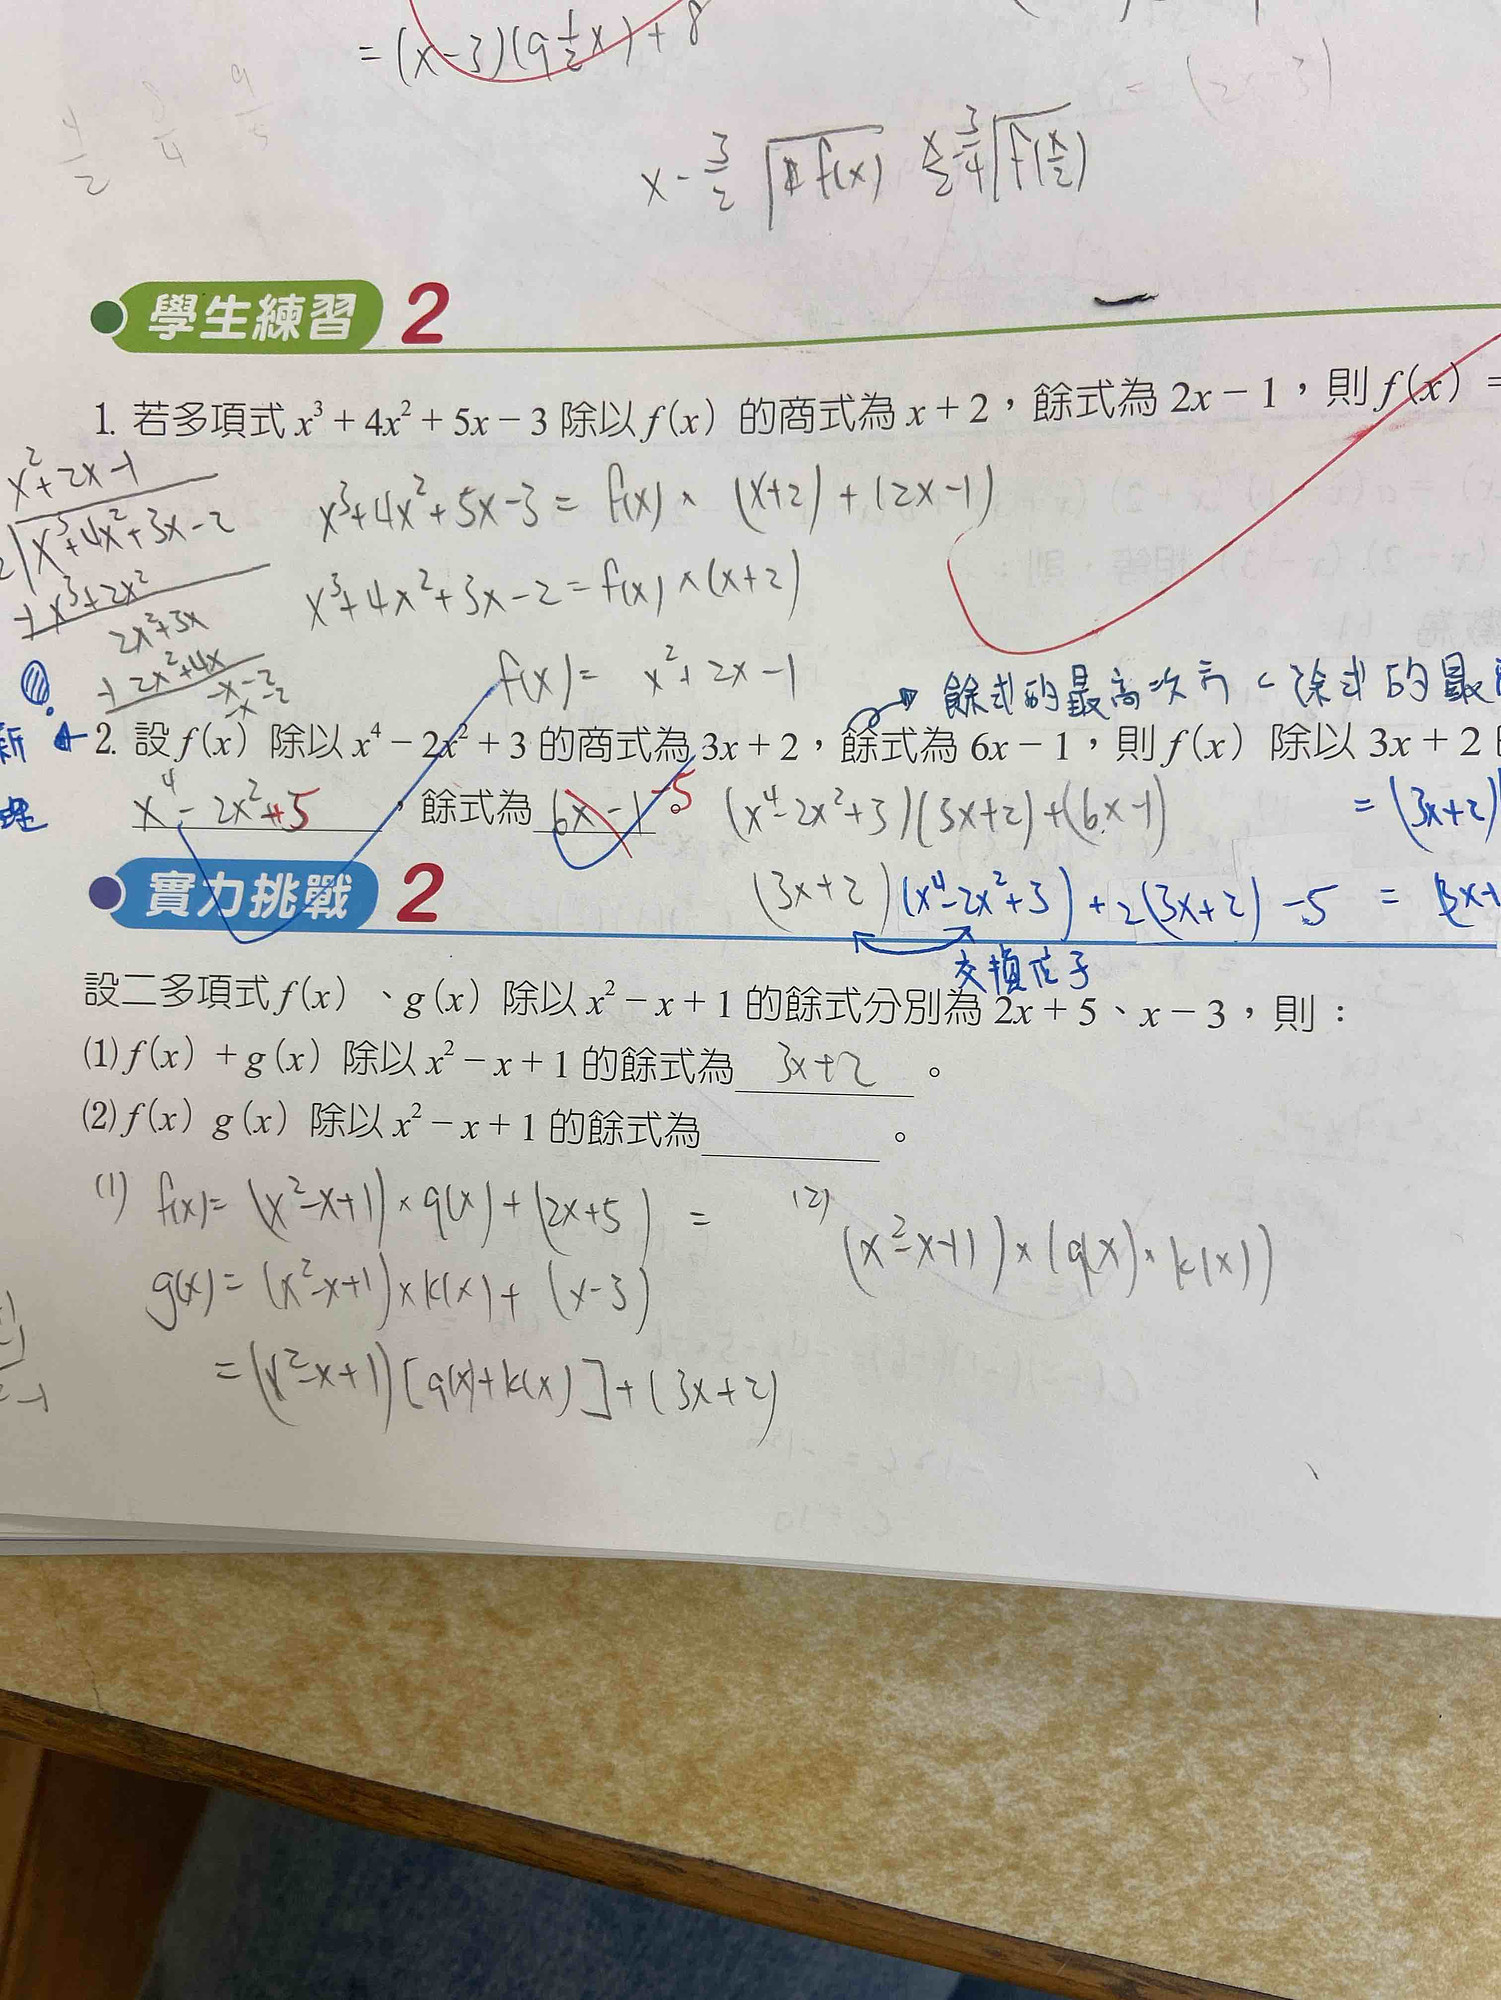 = (x-3)(q½x)+8
4/2 8/4 9/5
= (2x-3)
x - 3/2 f(x) x/2 - 3/4 f(x/2)
學生練習 2
1. 若多項式 x³ + 4x² + 5x − 3 除以 f(x) 的商式為 x + 2，餘式為 2x − 1，則 f(x) =
x²+2x-1
x³+4x²+3x-2
x³+2x²
2x²+3x
2x²+4x
-x-2
-x-2
x³+4x²+5x-3 = f(x) × (x+2) + (2x-1)
x³+4x²+3x-2 = f(x) × (x+2)
f(x) = x²+2x-1
餘式的最高次方 < 除式的最
新
2. 設 f(x) 除以 x⁴ − 2x² + 3 的商式為 3x + 2，餘式為 6x − 1，則 f(x) 除以 3x + 2
x⁴-2x²+5，餘式為 6x-1 -5。
(x⁴-2x²+3)(3x+2)+(6x-1) = (3x+2)
(3x+2)(x⁴-2x²+3)+2(3x+2)-5 =
交換位子
實力挑戰 2
設二多項式 f(x)、g(x) 除以 x² − x + 1 的餘式分別為 2x + 5、x − 3，則：
(1) f(x) + g(x) 除以 x² − x + 1 的餘式為 3x+2 。
(2) f(x) g(x) 除以 x² − x + 1 的餘式為 。
(1) f(x)= (x²-x+1)×q(x)+(2x+5) =
g(x)= (x²-x+1)×k(x)+ (x-3)
=(x²-x+1)[q(x)+k(x)]+(3x+2)
(2) (x²-x+1)×(q(x)×k(x))